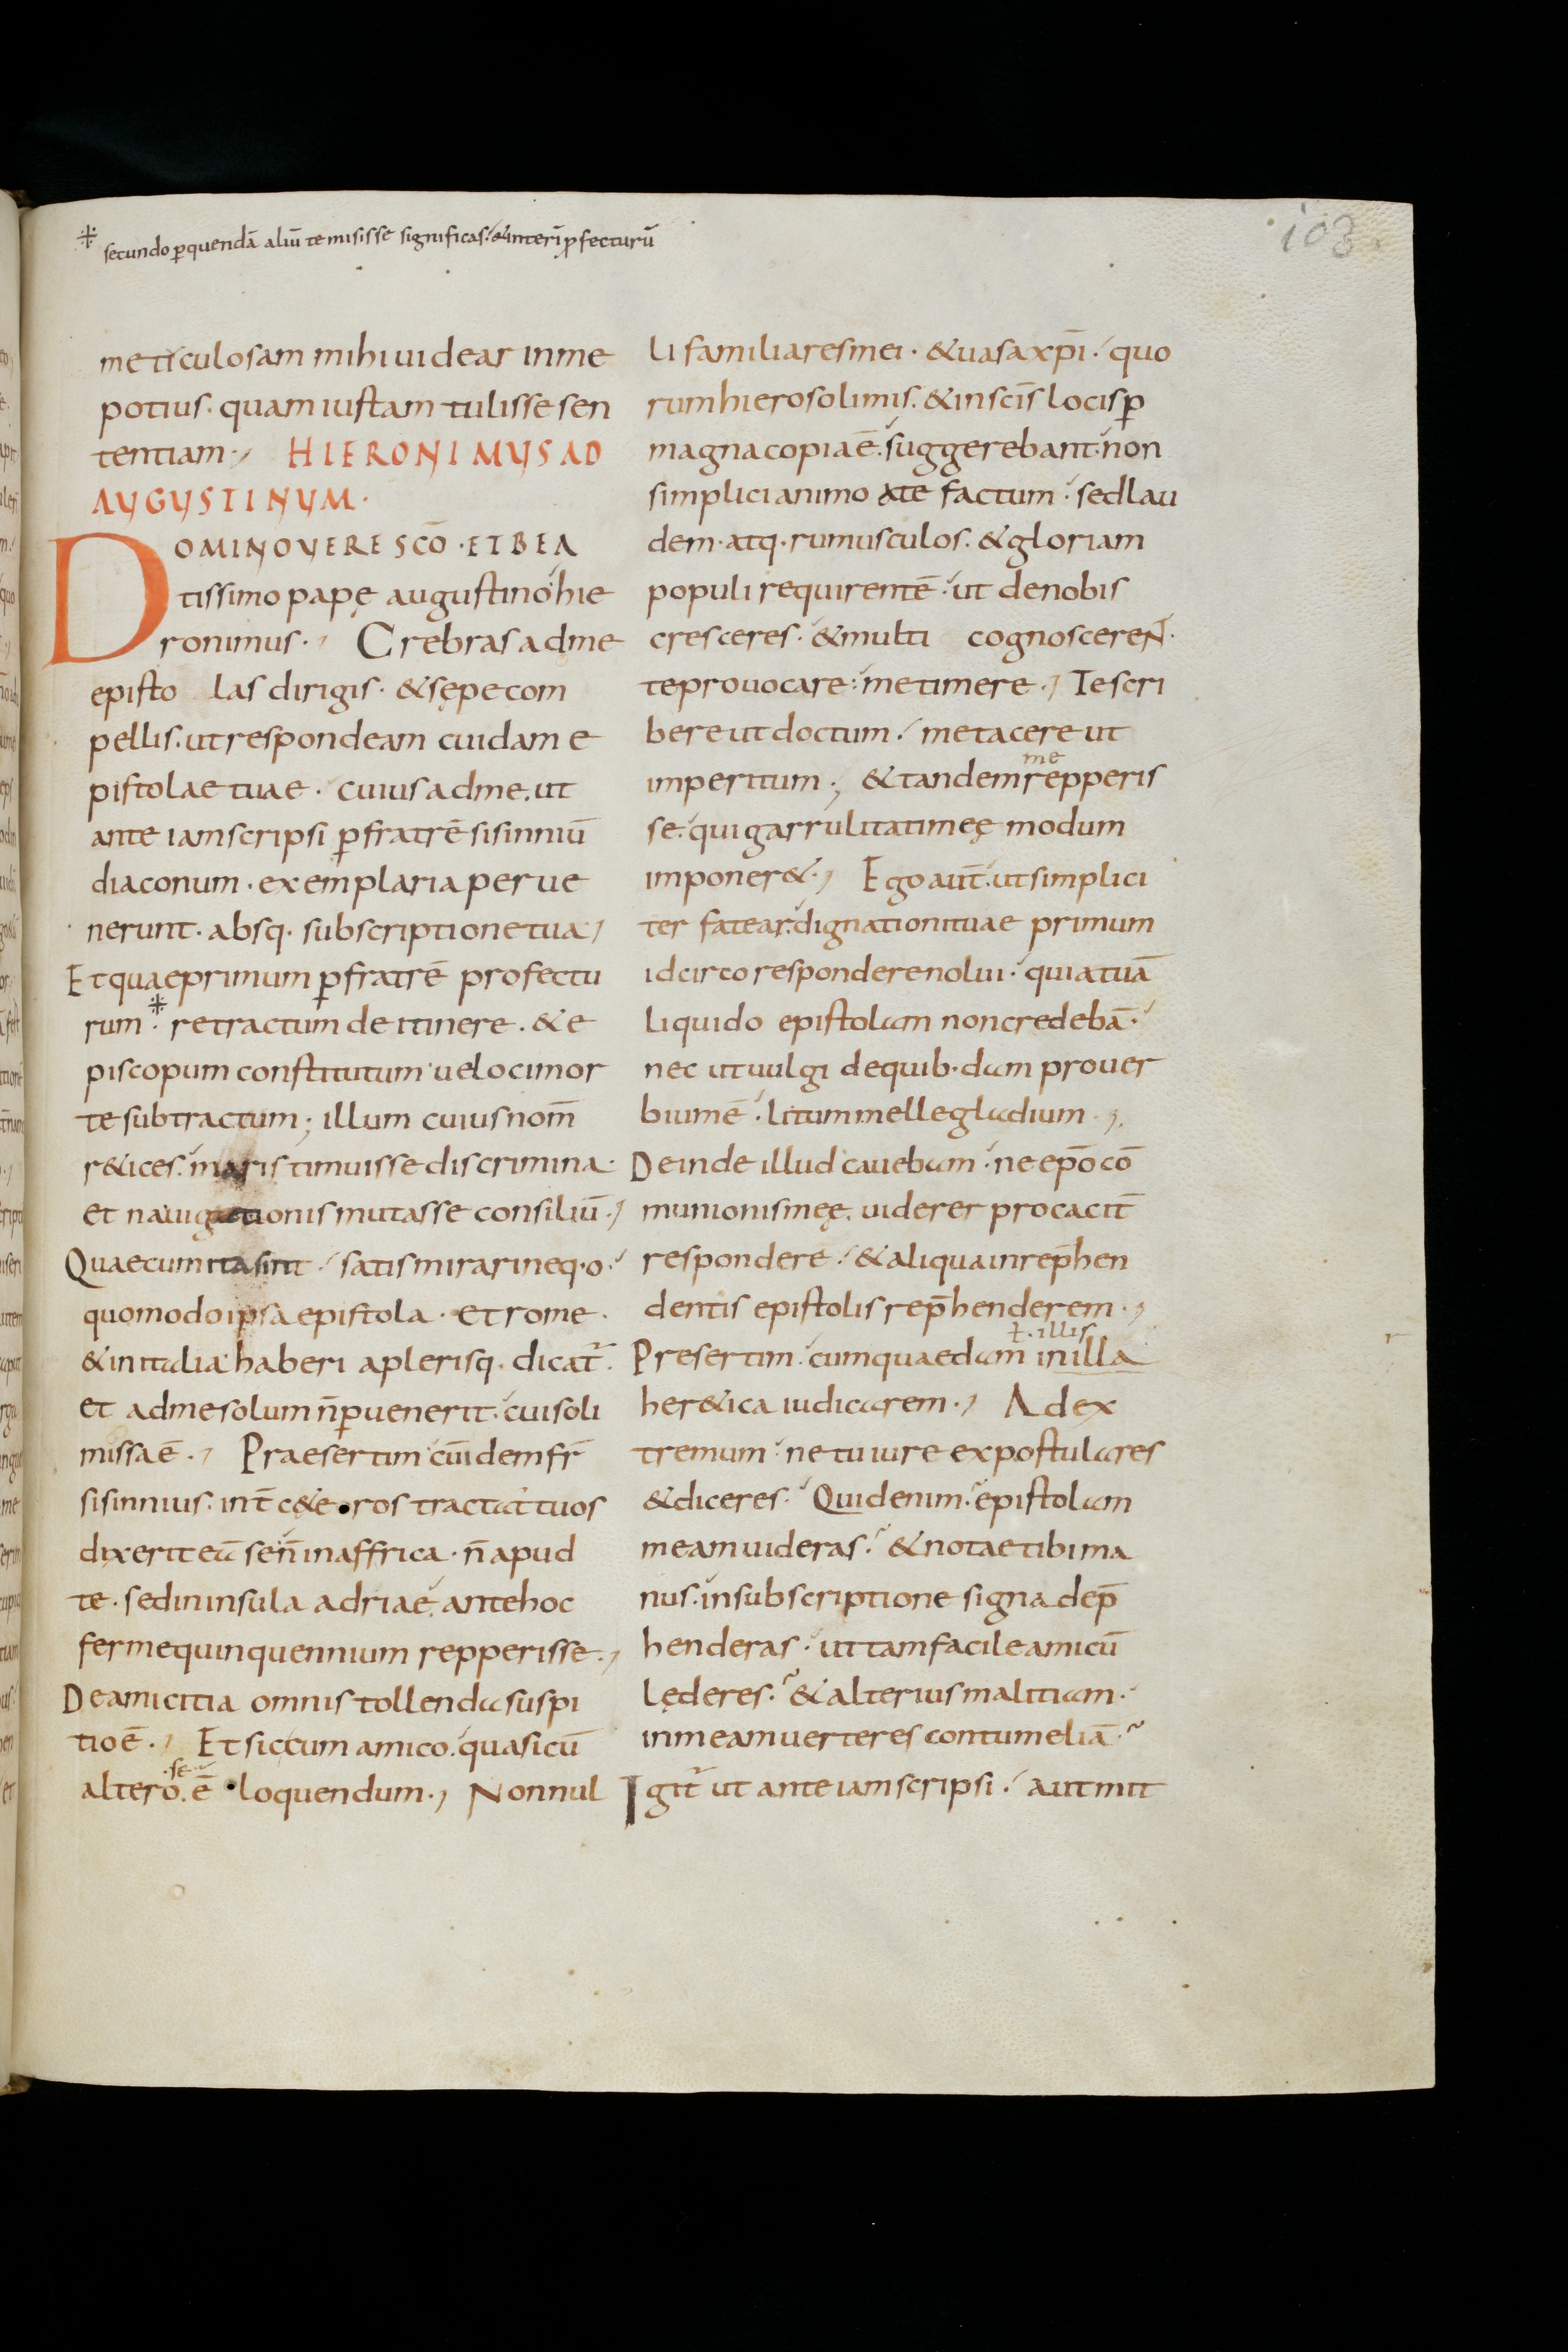 103
⁜ secundo ꝑquendā aliū te misisse significas. &interī ꝓfecturū
meticulosam mihi uidear inme
potius· quam iustam tulisse sen
tentiam·, HIERONIMUS AD
AUGUSTINUM·
DOMINO UERE SCŌ· ET BEA
tissimo papę augustino hie
ronimus·, Crebras adme
episto las dirigis· &sępe com
pellis. ut respondeam cuidam e
pistolae tuae· cuius adme. ut
ante iam scripsi ꝑfratrē sisinniū
diaconum· exemplaria perue
nerunt· absq· subscriptione tua,
Et quae primum ꝑfratrē profectu
rum⁜ retractum de itinere. &e
piscopum constitutum ueloci mor
te subtractum; illum cuius nom̄
r&ices. maris timuisse discrimina·
et nauigationis mutasse consiliū·,
Quae cum ita sint· satis mirari neq·o·
quomodo ipsa epistola· et rome·
&initalia haberi aplerisq· dicat̄·
et adme solum n̄ ꝑuenerit· cui soli
missa ē·, Praesertim cū idem fr̄
sisinnius. int̄ c&e ros tractat' tuos
dixerit eā se n̄ inaffrica· n̄ apud
te· sed ininsula adriae. ante hoc
ferme quinquennium repperisse·,
De amicitia omnis tollenda suspi
tio ē·, Et sic cum amico. quasi cū
altero. ē ·se· loquendum·, Nonnul
li familiares mei· &uasa xp̄i· quo
rum hierosolimis. &in sc̄is locis ꝑ
magna copia ē. suggerebant· non
simplici animo ate factum· sed lau
dem· atq· rumusculos. &gloriam
populi requirentē· ut de nobis
cresceres· &multi cognoscerent·
te prouocare· me timere·, Te scri
bere ut doctum· me tacere ut
imperitum·, &tandem me repperis
se· qui garrulitati meę modum
imponer&·, Ego aut̄. ut simplici
ter fatear. dignationi tuae primum
idcirco respondere nolui· quia tuā
liquido epistolam non credebā·
nec ut uulgi de quib· dam prouer
bium ē· litum melle gladium·,
Deinde illud cauebam· ne ep̄o cō
munionis meę. uiderer procacit̄
respondere· &aliqua inrep̄hen
dentis epistolis rep̄henderem·,
ł· illis
Presertim. cum quaedam inilla
her&ica iudicarem·, Ad ex
tremum· ne tu iure expostulares
&diceres· Quid enim· epistolam
meam uideras· &notae tibi ma
nus. insubscriptione signa dep̄
henderas· ut tam facile amicū
lęderes· &alterius malitiam·
inmeam uerteres contumeliā·
Igit̄ ut ante iam scripsi· aut mit